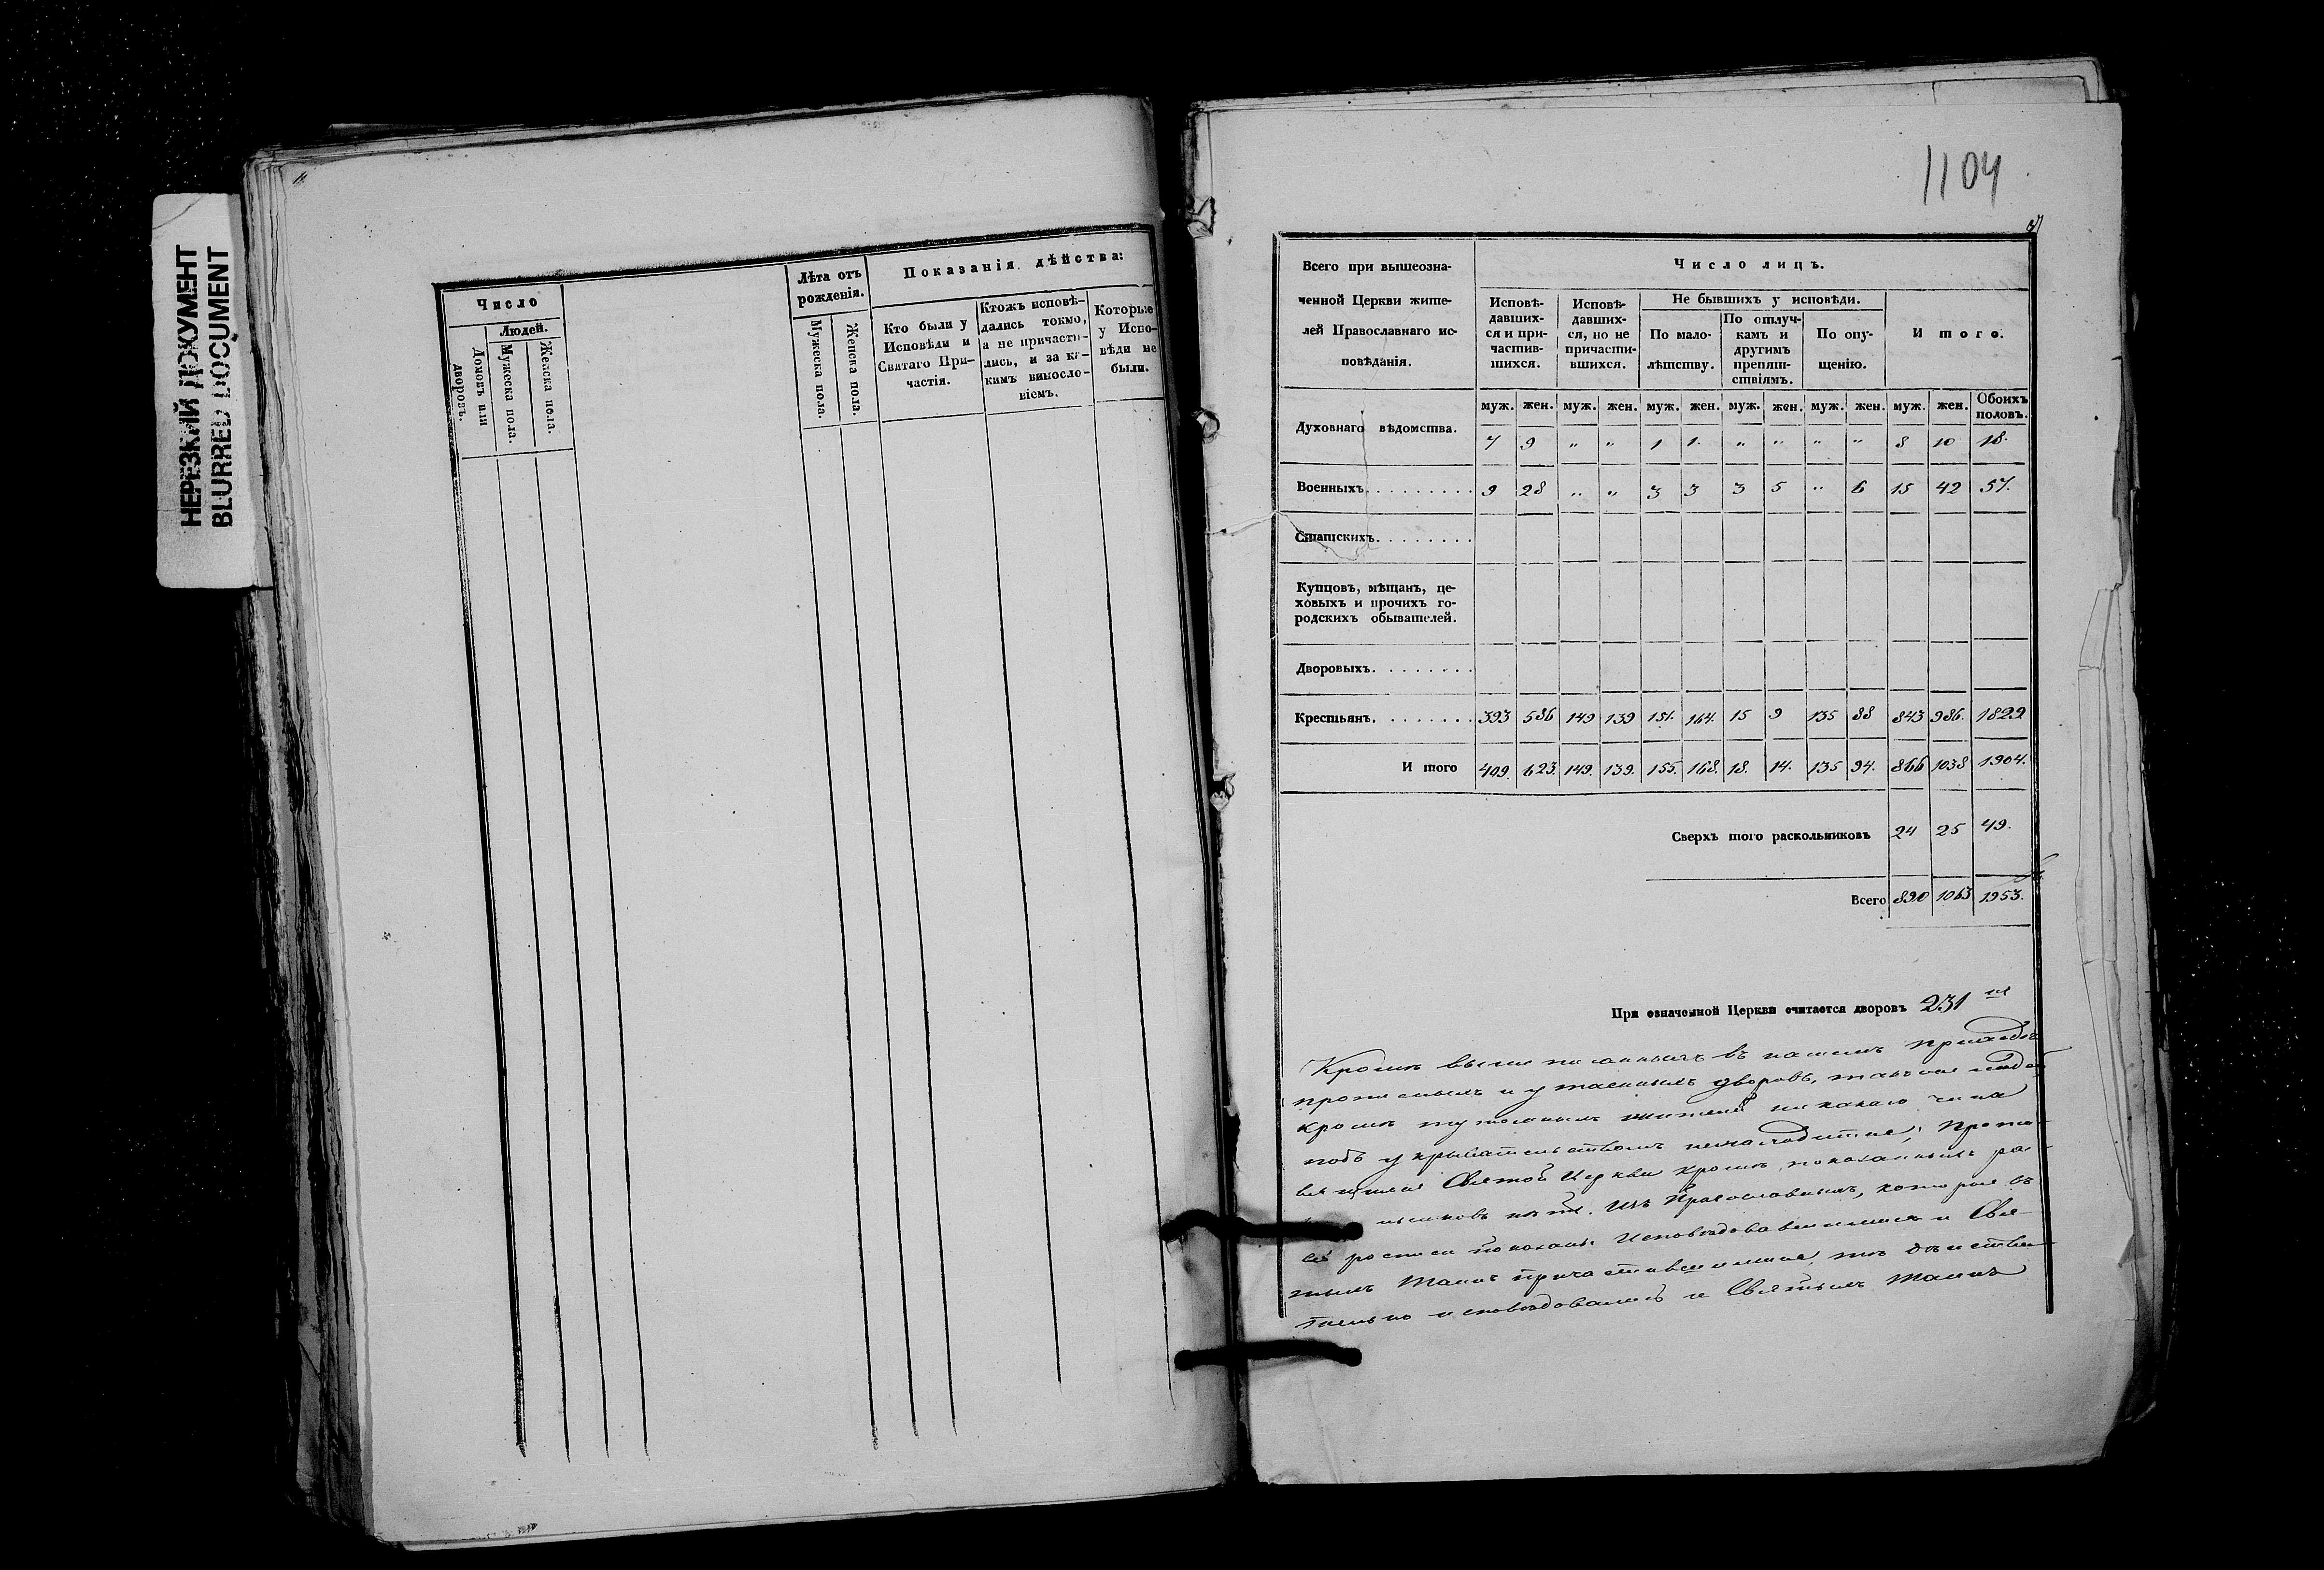 НЕРЕЗКИЙ ДОКУМЕНТ
BLURRED DOCUMENT
Число
Людей.
Домовъ или дворовъ.
Мужеска пола.
Женска пола.
Лѣта отъ рожденія.
Мужеска пола.
Женска пола.
Показанія дѣйства:
Кто были у
Исповѣди и
Святаго При-
частія.
Ктожъ исповѣ-
дались токмо,
а не причасти-
лись, и за ка-
кимъ винсло-
віемъ.
Которые
у Испо-
вѣди не
были.
1104
Всего при вышеозна-
ченной Церкви жите-
лей Православнаго ис-
повѣданія.
Число лицъ.
Исповѣ-
давших-
ся и при-
частив-
шихся.
Исповѣ-
давших-
ся, но не
причасти-
вшихся.
Не бывшихъ у исповѣди.
По мало-
лѣтству.
По отлуч-
камъ и
другимъ
препят-
ствіямъ.
По опу-
щенію.
Итого.
муж. жен. муж. жен. муж. жен. муж. жен. муж. жен. муж. жен. Обоихъ половъ.
Духовнаго вѣдомства. 7 9 „ „ 1 1. „ „ „ „ 8 10 18.
Военныхъ. . . . . . . . . 9 28 „ „ 3 3 3 5 „ 6 15 42 57.
Статскихъ. . . . . . . .
Купцовъ, мѣщанъ, це-
ховыхъ и прочихъ го-
родскихъ обывателей.
Дворовыхъ. . . . . . . .
Крестьянъ. . . . . . . . 393 586 149 139 151. 164. 15 9 135 88 843 986. 1829
И того 409. 623. 149. 139. 155. 168. 18. 14. 135 94. 866 1038 1904.
Сверхъ того раскольниковъ 24 25 49.
Всего 890 1063 1953.
При означенной Церкви считается дворовъ 231
Кромѣ выше писанныхъ въ нашемъ приходѣ
прописныхъ и утаенныхъ дворовъ, такъже людей
кромѣ жителей никакаго чина
подъ укрывательствомъ ненаходится; Проти-
вящихся Святой Церкви кромѣ показанныхъ рас-
никовъ нѣтъ. Изъ Православныхъ, которые въ
сей росписи показаны Исповѣдовавшимися и Свя-
тыхъ Таинъ причастившимися, тѣ дѣйстви-
тельно исповѣдовались и Святыхъ Таинъ